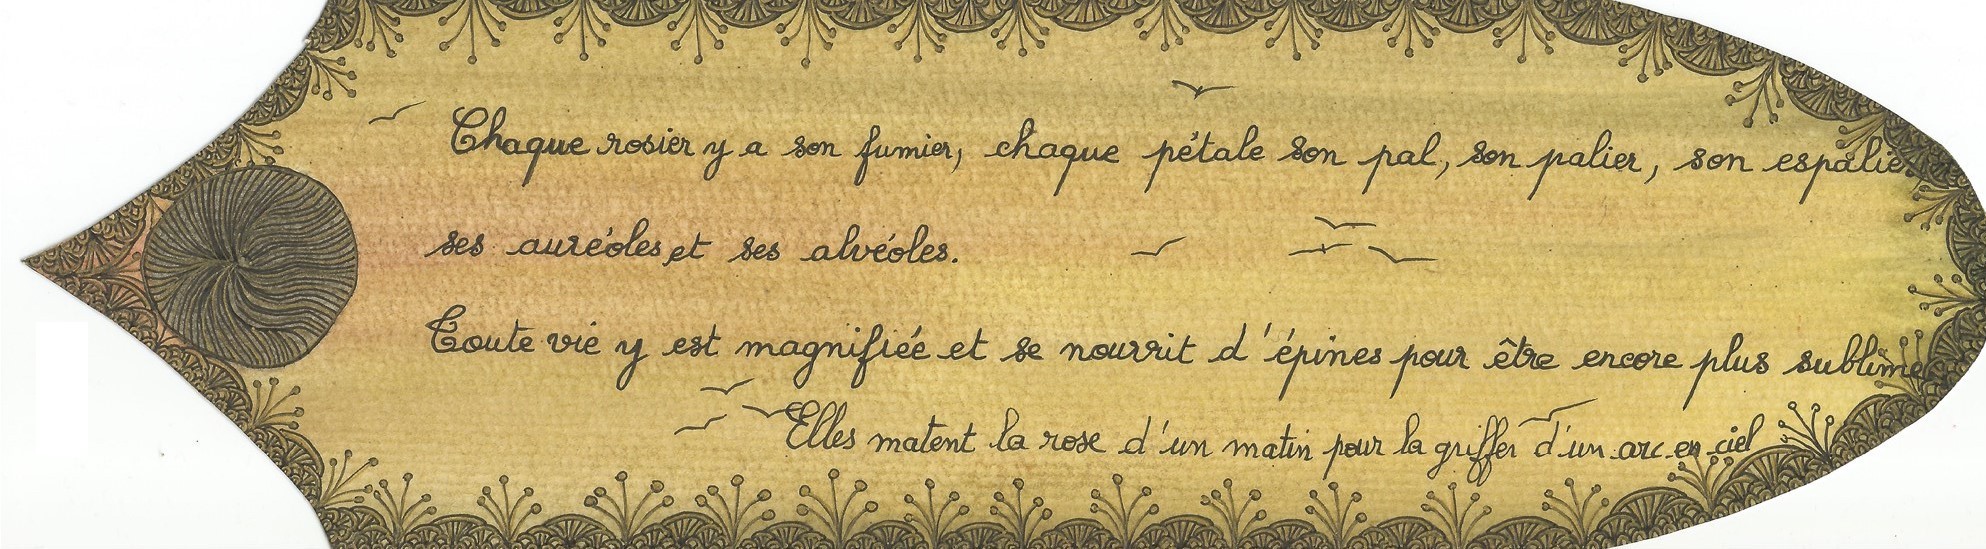 Chaque rosier y a son fumier, chaque pétale son pal, son palier, son espalier
ses auréoles et ses alvéoles.
Toute vie y est magnifiée et se nourrit d'épines pour être encore plus sublime
Elles matent la rose d'un matin pour la griffer d'un arc en ciel